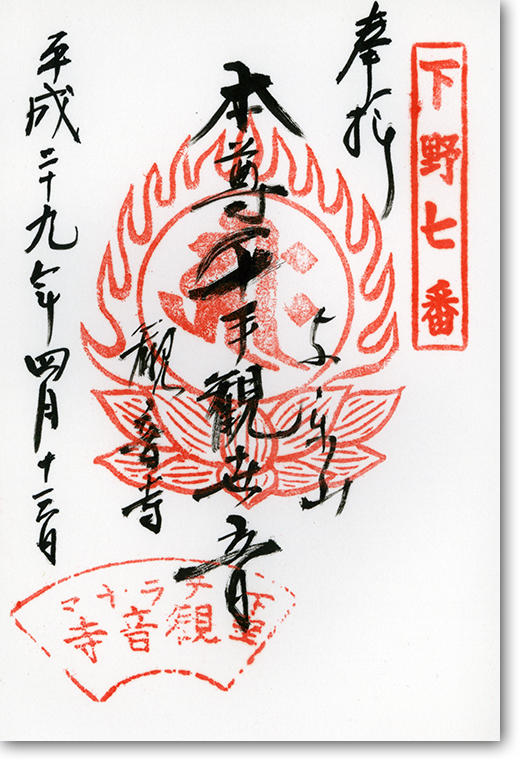 下野七番
奉拝
与楽山
本尊千手観世音
観音寺
平成二十九年四月十三日
観音寺